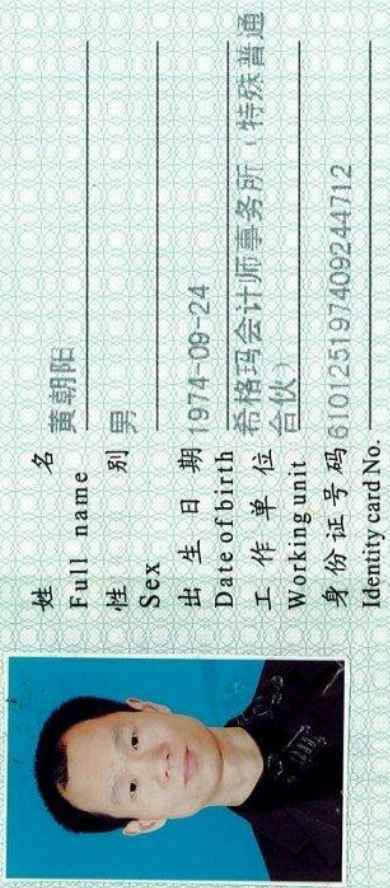 姓 名 黄朝阳
Full name
性 别 男
Sex
出 生 日 期 1974-09-24
Date of birth
工 作 单 位 希格玛会计师事务所（特殊普通
Working unit 合伙）
身份证号码 610125197409244712
Identity card No.